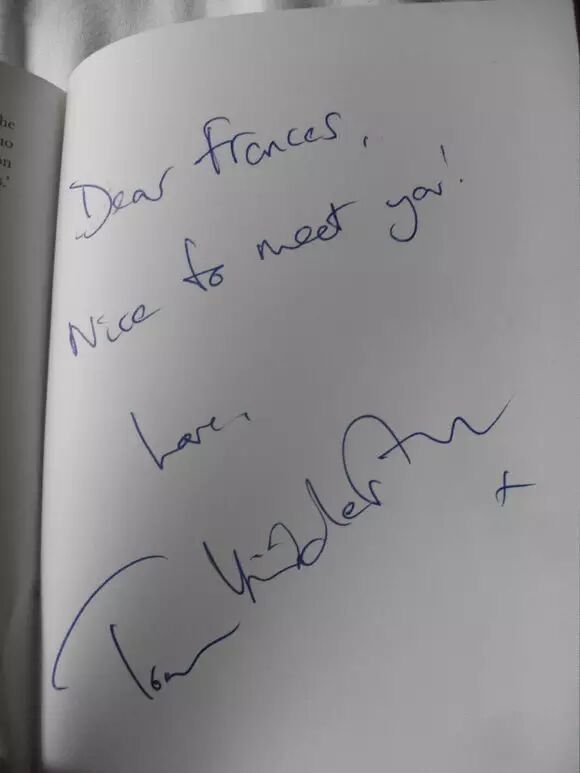 he
no
on
s.'
Dear Frances,
Nice to meet you!
Love,
Tom Hiddleston
x